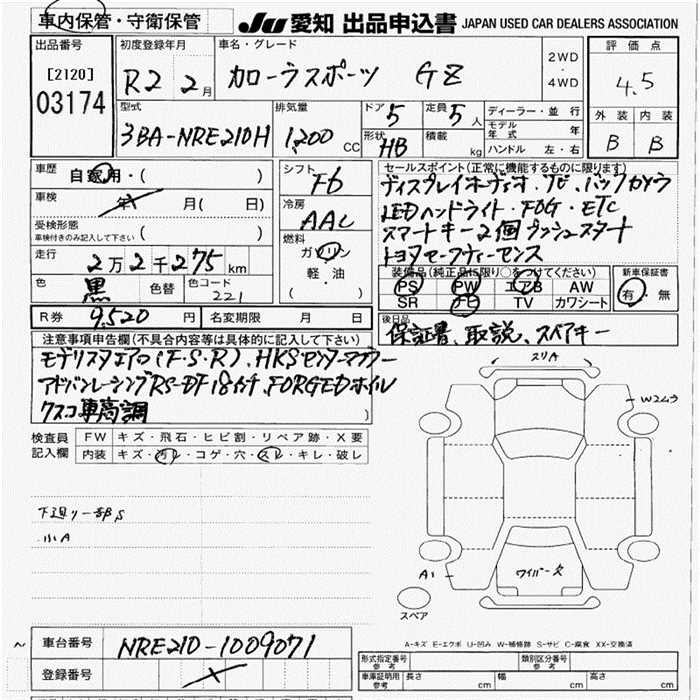 車内保管・守衛保管 JU 愛知 出品申込書 JAPAN USED CAR DEALERS ASSOCIATION
出品番号 初度登録年月 車名・グレード 評価点
[2120] R2 2月 カローラスポーツ GZ 2WD・4WD 4.5
03174 型式 排気量 ドア 5 定員 5人 ディーラー・並行 外装 内装
モデル年式 年
3BA-NRE210H 1,200 CC 形状 HB 積載 kg ハンドル 左・右 B B
車歴 自家用・( ) シフト F6 セールスポイント(正常に機能するものに限ります)
車検 年 月( 日) 冷房 AAC ディスプレイオーディオ・TV・バックカメラ
LEDヘッドライト・FOG・ETC
受検形態 車検付きのみ記入して下さい ( ) 燃料 ガソリン 軽・油 ( ) スマートキー2個 プッシュスタート
走行 2万2千275km トヨタセーフティーセンス
色 黒 色替 色コード 221 装備品(純正品に限り○をつけてください) 新車保証書
PS PW エアB AW 有・無
SR TV カワシート
R券 9,520円 名変期限 月 日 後日品
保証書、取説、スペアキー
注意事項申告欄(不具合内容等は具体的に記入して下さい)
モデリスタエアロ(F・S・R)、HKSセンターマフラー
アドバンレーシングRS-DF 18インチ、FORGEDホイル
クスコ車高調
スリA
W2ムラ
検査員記入欄 FW キズ・飛石・ヒビ割・リペア跡・X要
内装 キズ・汚レ・コゲ・穴・スレ・キレ・破レ
下廻リ一部S
小A
A1 ワイパー欠
スペア
A-キズ E-エクボ U-凹み W-補修跡 S-サビ C-腐食 XX-交換済
車台番号 NRE210-1009071
登録番号
形式指定番号 参考 類別区分番号 参考
車庫証明用 参考 長さ cm 幅 cm 高さ cm